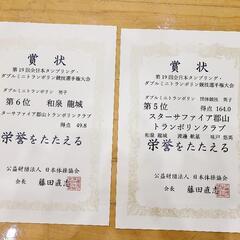 賞状
第19回全日本タンブリング・
ダブルミニトランポリン競技選手権大会
ダブルミニトランポリン 男子
第6位 和泉 龍城
スターサファイア郡山トランポリンクラブ
得点 49.8
栄誉をたたえる
公益財団法人 日本体操協会
会長 藤田直志
賞状
第19回全日本タンブリング・
ダブルミニトランポリン競技選手権大会
ダブルミニトランポリン 団体競技 男子
第5位 得点 164.0
スターサファイア郡山
トランポリンクラブ
和泉 龍城
栄誉をたたえる
公益財団法人 日本体操協会
会長 藤田直志